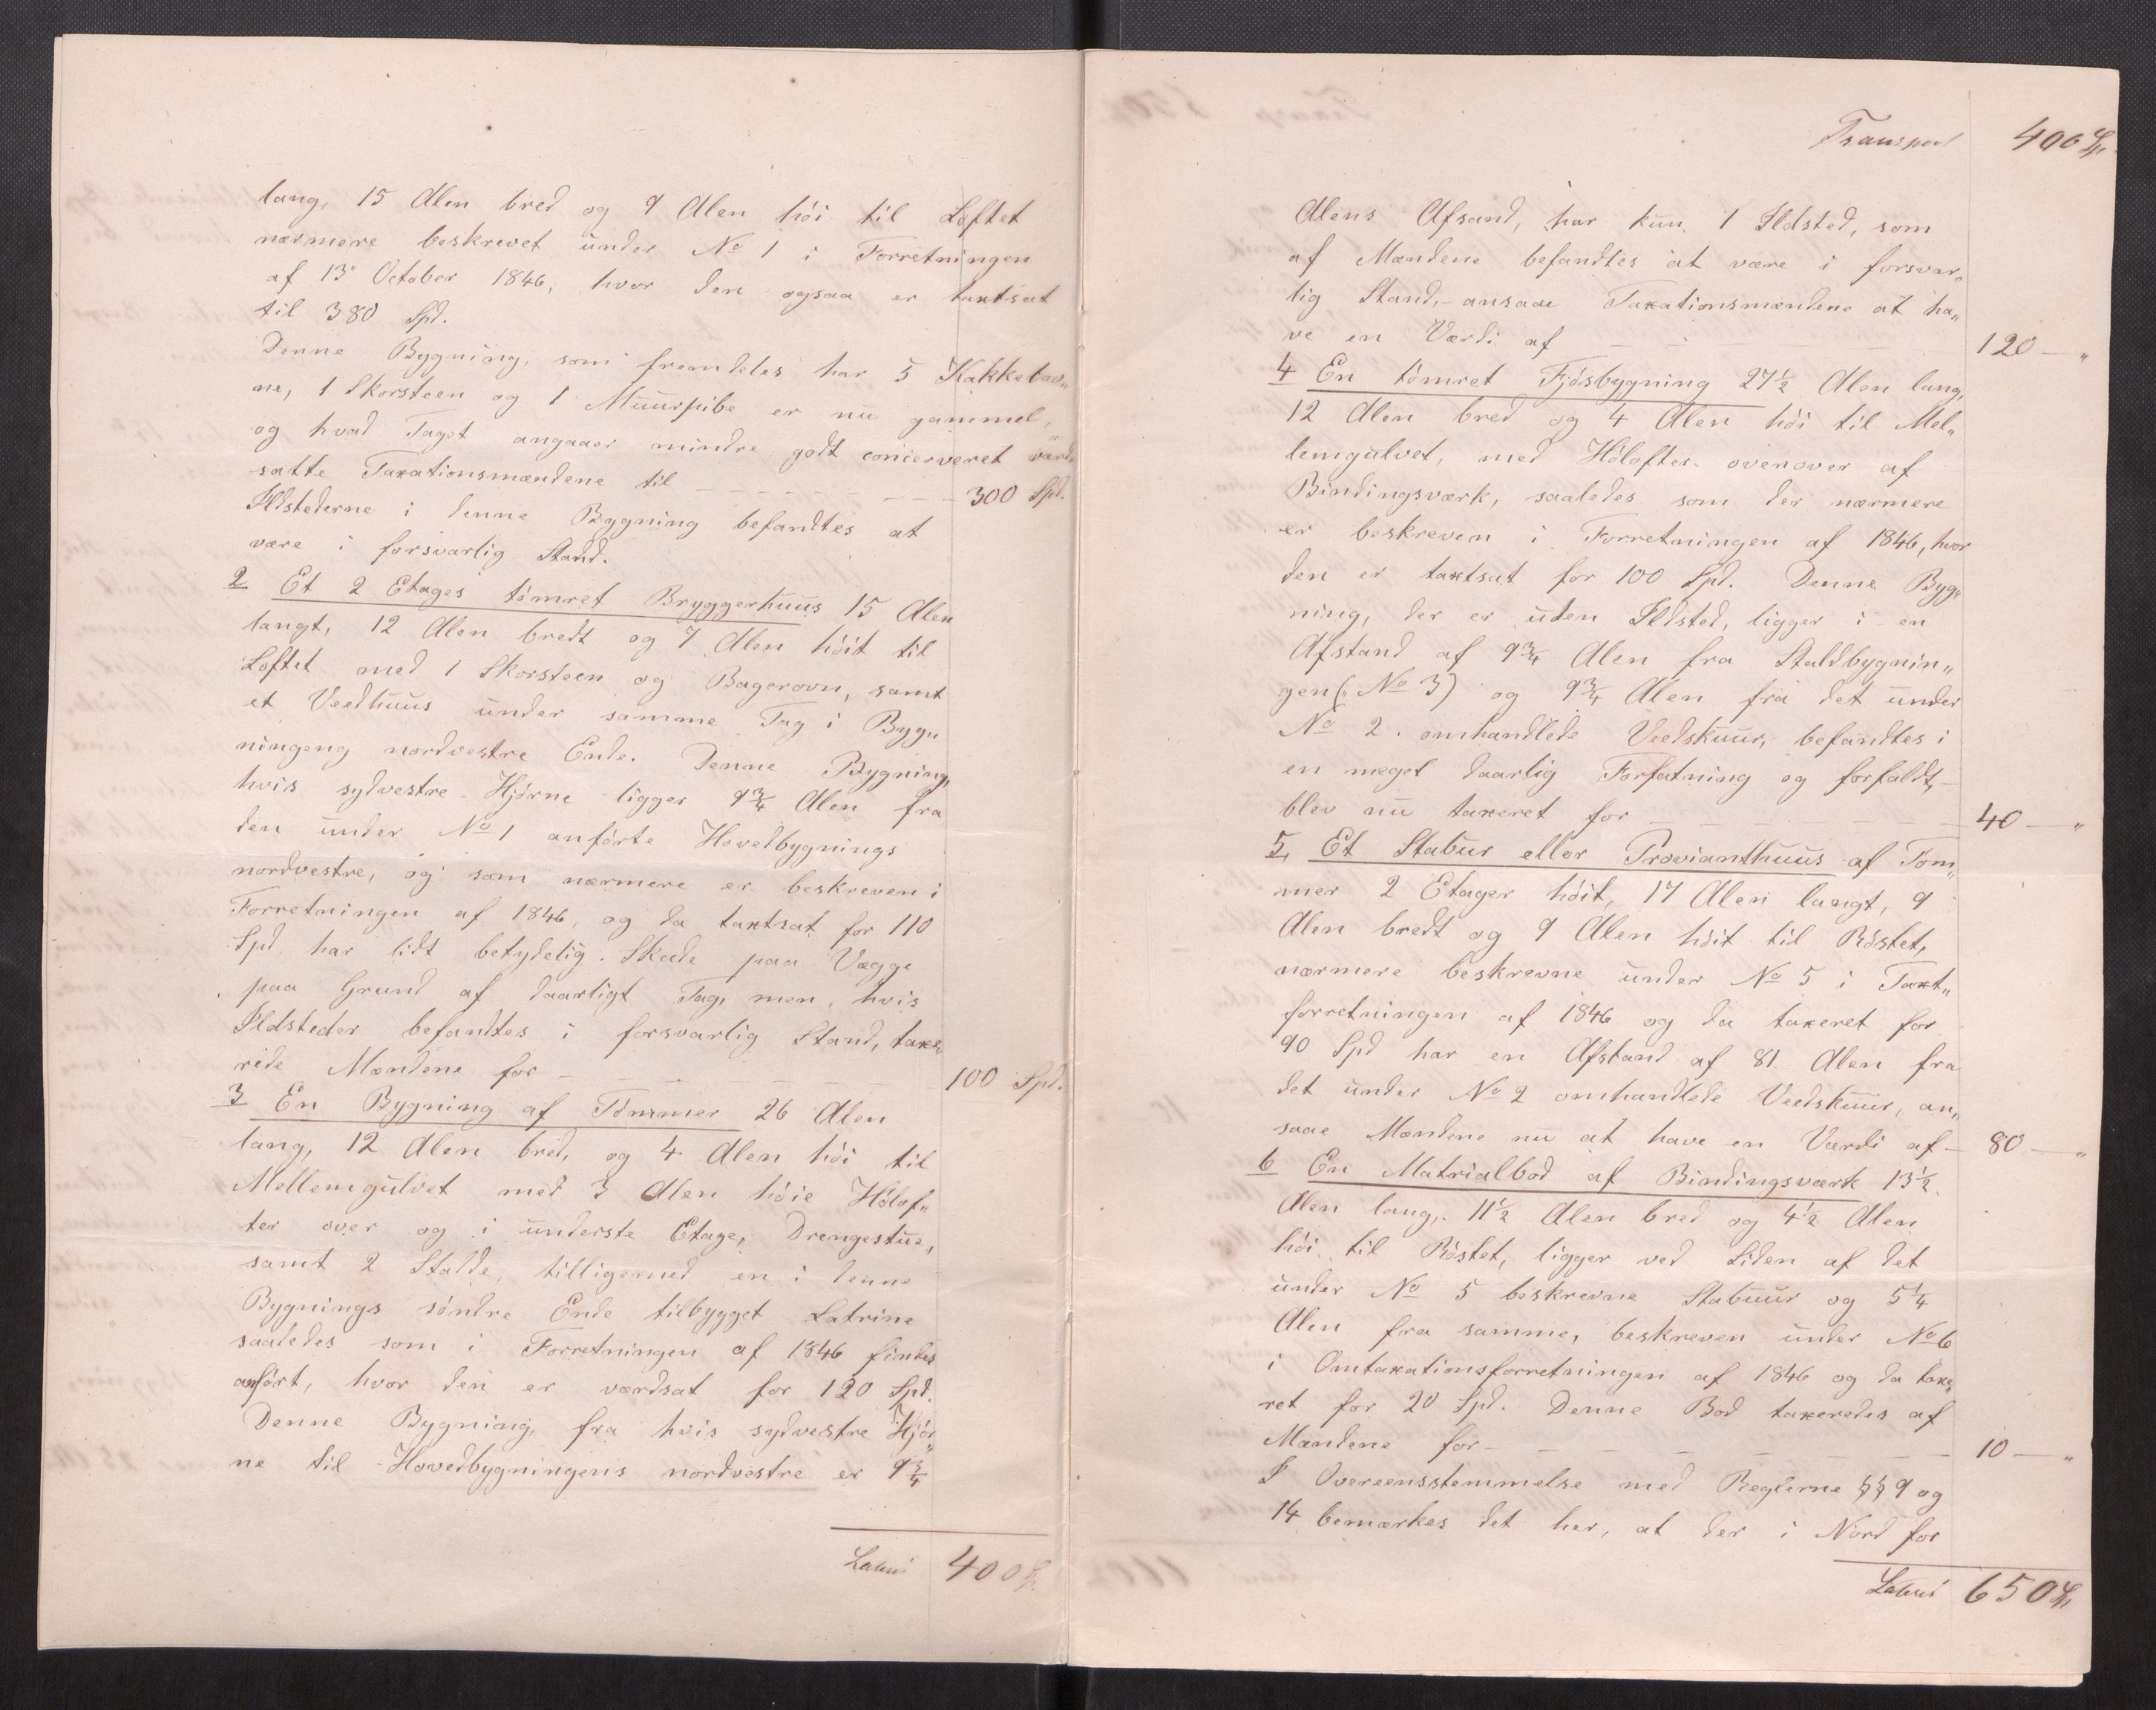 lang, 15 Alen bred og 9 Alen höi til Loftet
nærmere beskrevet under No 1 i Forretningen
af 13de October 1846, hvor den ogsaa er taxtsat
til 380 Spd.
Denne Bygning, som fremdeles har 5 Kakkelov„
ne, 1 Skorsteen og 1 Muurpibe er nu gammel,
og hvad Taget angaaer mindre godt conserveret værd„
satte Taxationsmændene til — — — — — — 300 Spd.
Ildstederne i denne Bygning befandtes at
være i forsvarlig Stand.
2 Et 2 Etages tömret Bryggerhuus 15 Alen
langt, 12 Alen bredt og 7 Alen höit til
Loftet med 1 Skorsteen og Bagerovn, samt
et Veedhuus under samme Tag i Byg„
ningeng nordvestre Ende. Denne Bygning,
hvis sydvestre Hjörne ligger 9 3/4 Alen fra
den under No 1 anförte Hovedbygnings
nordvestre, og som nærmere er beskreven i
Forretningen af 1846, og da taxtsat for 110
Spd. har lidt betydelig Skade paa Vægge
paa Grund af daarligt Tag, men, hvis
Ildsteder befandtes i forsvarlig Stand, taxe„
rede Mændene for — — — — — — 100 Spd.
3 En Bygning af Tömmer 26 Alen
lang, 12 Alen bred, og 4 Alen höi til
Mellemgulvet med 3 Alen höie Hölof„
ter over og i underste Etage, Drengestue,
samt 2 Stalde, tilligemed en i denne
Bygnings söndre Ende tilbygget Latrine
saaledes som i Forretningen af 1846 findes
anfört, hvor den er værdsat for 120 Spd.
Denne Bygning, fra hvis sydvestre Hjör„
ne til Hovedbygningens nordvestre er 9 3/4
Latus 400 Sp.
Transport 400 Sp.
Alens Afsand, har kun 1 Ildsted, som
af Mændene befandtes at være i forsvar„
lig Stand, - ansaae Taxationsmændene at ha„
ve en Værdi af — — — 120 — „
4 En tömret Fjösbygning 27 1/2 Alen lang,
12 Alen bred og 4 Alen höi til Mel„
lemgulvet, med Höloftes ovenover af
Bindingsværk, saaledes som der nærmere
er beskreven i Forretningen af 1846, hvor
den er taxtsat for 100 Spd. Denne Byg„
ning, der er uden Ildsted, ligger i en
Afstand af 9 3/4 Alen fra Staldbygnin„
gen (: No 3) og 9 3/4 Alen fra det under
No 2. omhandlede Veedskuur, befandtes i
en meget daarlig Forfatning og forfaldt, -
blev nu taxeret for — — — — — 40 — „
5, Et Stabur eller Provianthuus af Töm„
mer 2 Etager höit, 17 Alen langt, 9
Alen bredt og 9 Alen höit til Röstet,
nærmere beskrevne under No 5 i Taxt„
forretningen af 1846 og da taxeret for
90 Spd har en Afstand af 81 Alen fra
det under No 2 omhandlede Veedskuur, an„
saae Mændene nu at have en Værdi af — 80 — „
6 En Matrialbod af Bindingsværk 13 1/2
Alen lang, 11 1/2 Alen bred og 4 1/2 Alen
höi til Röstet, ligger ved Siden af det
under No 5 beskrevne Stabuur og 5 1/4
Alen fra samme, beskreven under No 6
i Omtaxationsforretningen af 1846 og da taxe„
ret for 20 Spd. Denne Bod taxeredes af
Mændene for — — — — — — 10 — „
I Overeensstemmelse med Reglerne §§ 9 og
14 bemærkes det her, at der i Nord for
Latus 650 Sp.